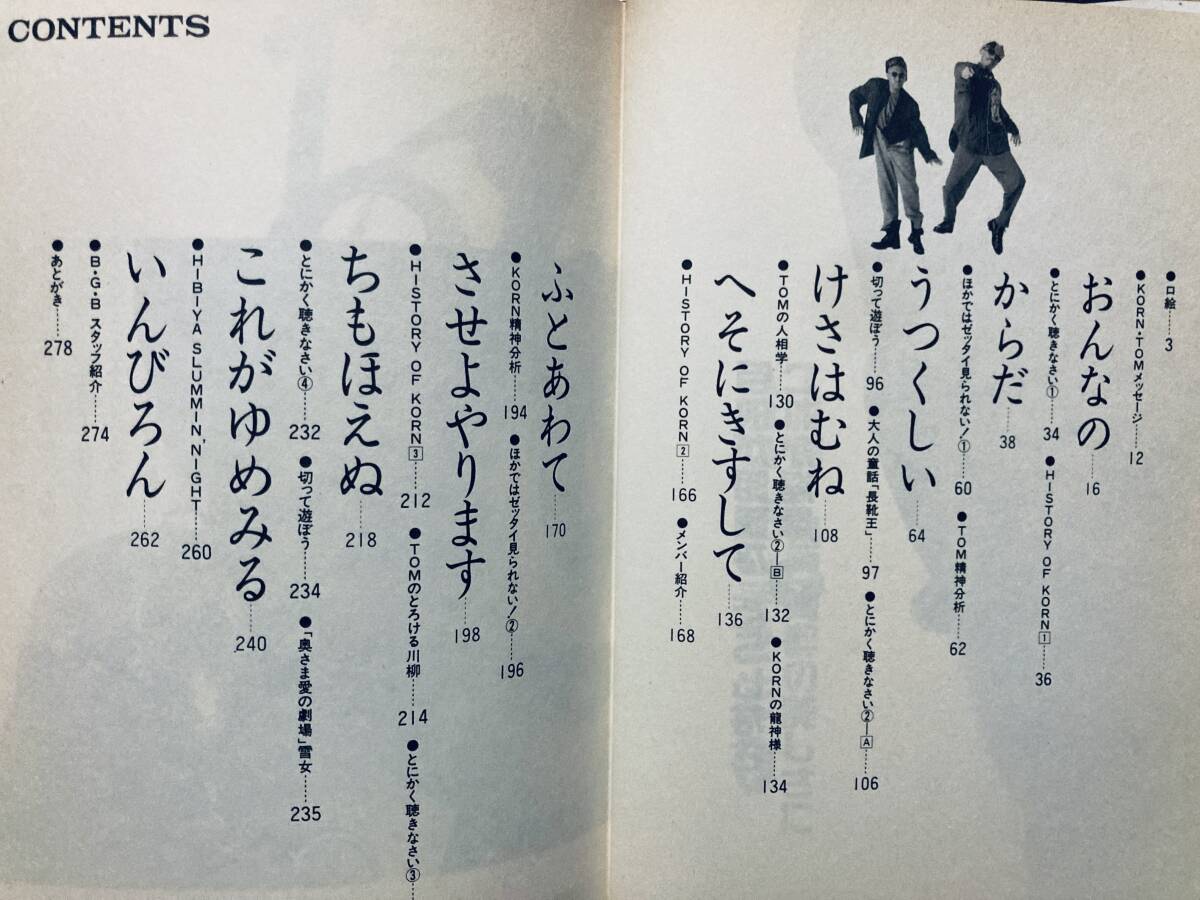 CONTENTS
●口絵……3
●KORN・TOMメッセージ……12
おんなの……16
●とにかく聴きなさい①……34 ●HISTORY OF KORN 1……36
からだ……38
●ほかではゼッタイ見られない！①……60 ●TOM精神分析……62
うつくしい……64
●切って遊ぼう……96 ●大人の童話「長靴王」……97 ●とにかく聴きなさい②—A……106
けさはむね……108
●TOMの人相学……130 ●とにかく聴きなさい②—B……132 ●KORNの龍神様……134
へそにきすして……136
●HISTORY OF KORN 2……166 ●メンバー紹介……168
ふとあわて……170
●KORN精神分析……194 ●ほかではゼッタイ見られない！②……196
させよやります……198
●HISTORY OF KORN 3……212 ●TOMのとろける川柳……214 ●とにかく聴きなさい③……
ちもほえぬ……218
●とにかく聴きなさい④……232 ●切って遊ぼう……234 ●「奥さま愛の劇場」雪女……235
これがゆめみる……240
●HIBIYA SLUMMIN' NIGHT……260
いんびろん……262
●B・G・B スタッフ紹介……274
●あとがき……278